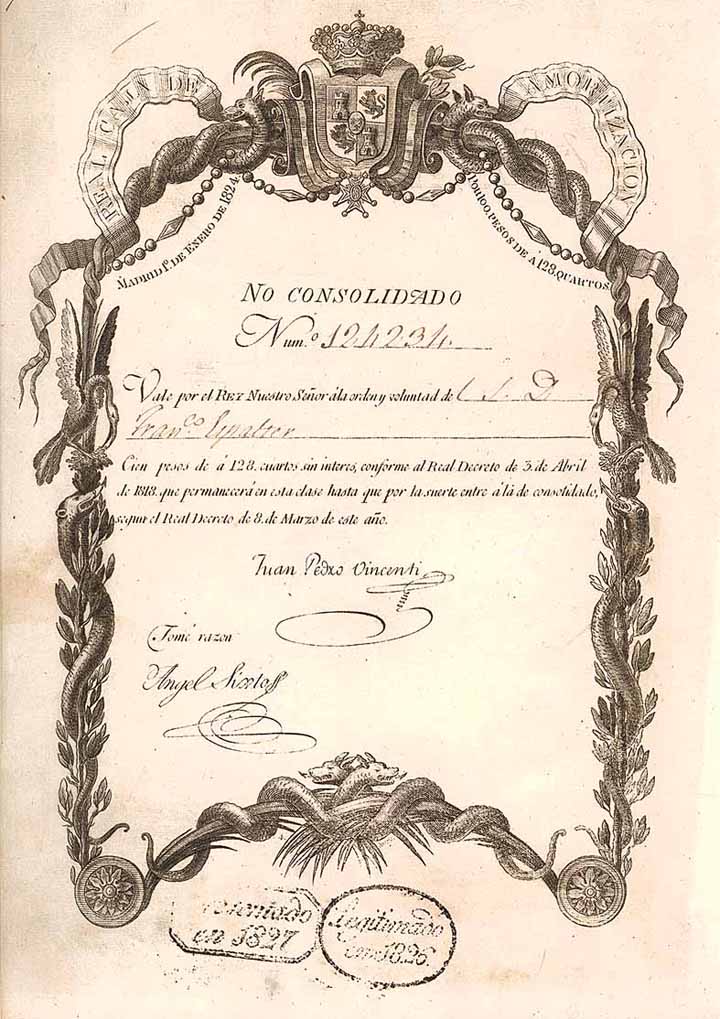 REAL CAJA DE
AMORTIZACION
MADRID 1º. DE ENERO DE 1824.
POR 100. PESOS DE A 128. QUARTOS
NO CONSOLIDADO
Num.º 124234.
Vale por el REY Nuestro Señor á la orden y voluntad de
Fran.co
Cien pesos de á 128. cuartos sin interes, conforme al Real Decreto de 3. de Abril
de 1818. que permanecerá en esta clase hasta que por la suerte entre á lá de consolidado,
segun el Real Decreto de 8. de Marzo de este año.
Juan Pedro Vincenti
Tomé razon
Angel Sixto
en 1827
Legitimado
en 1826.